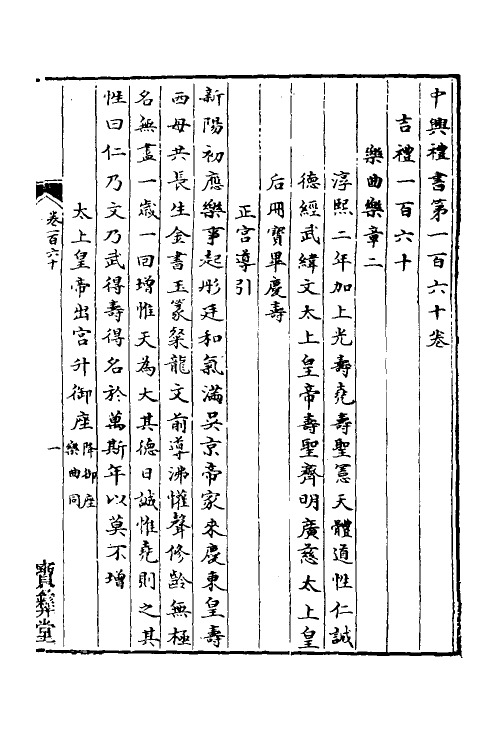 中興禮書第一百六十卷
吉禮一百六十
樂曲樂章二
淳熙二年加上光壽堯壽聖憲天體道性仁誠
德經武緯文太上皇帝壽聖齊明廣慈太上皇
后冊寶畢慶壽
正宮導引
新陽初應樂事起彤廷和氣滿吳京帝家來慶東皇壽
西母共長生金書玉篆粲龍文前導沸懽聲修齡無極
名無盡一歲一回增惟天為大其德日誠惟堯則之其
性曰仁乃文乃武得壽得名於萬斯年以莫不增
太上皇帝出宮升御座降御座
樂曲同
卷一百六十
一
寶彝堂